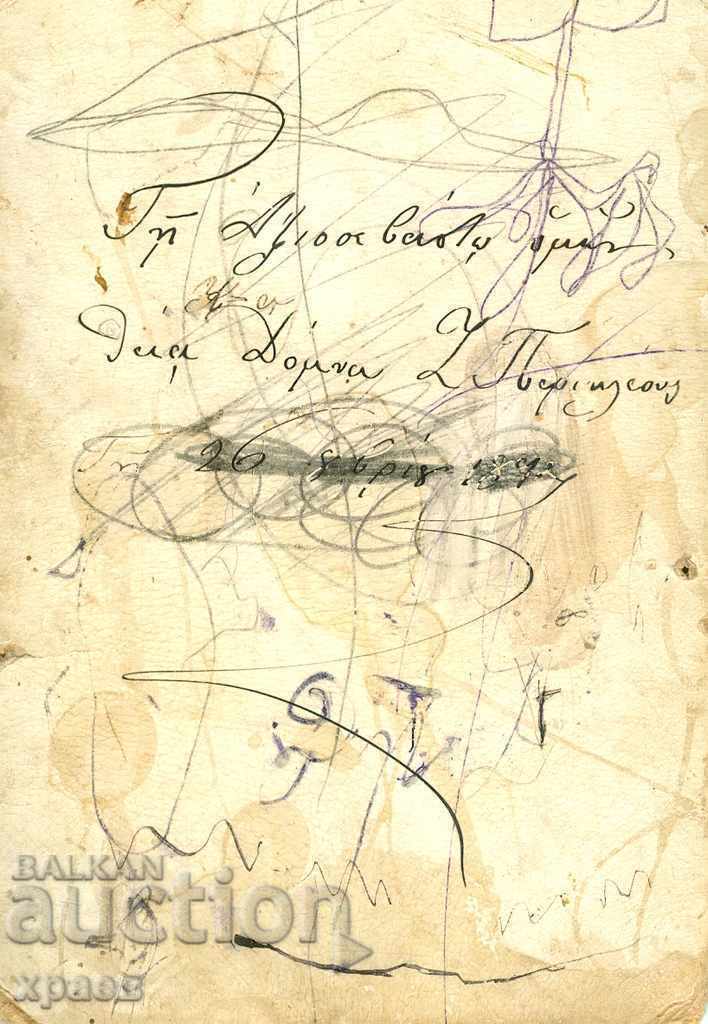 Τῇ Ἀξιοσεβάστῳ ἡμῶν
θείᾳ Δόμνᾳ Ζ Περικλέους
Τῇ 26
BALKAN
auction
храов